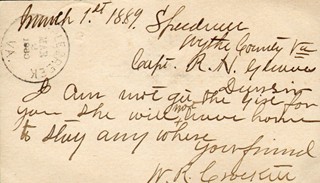 March 1.st 1889. Speedwell
Wythe County Va
Capt. R. N.
Dear Sir
I am not get the for
you she will not leave home
to stay any where
Your friend
W. R. Crockett
CREEK
MAR
VA.